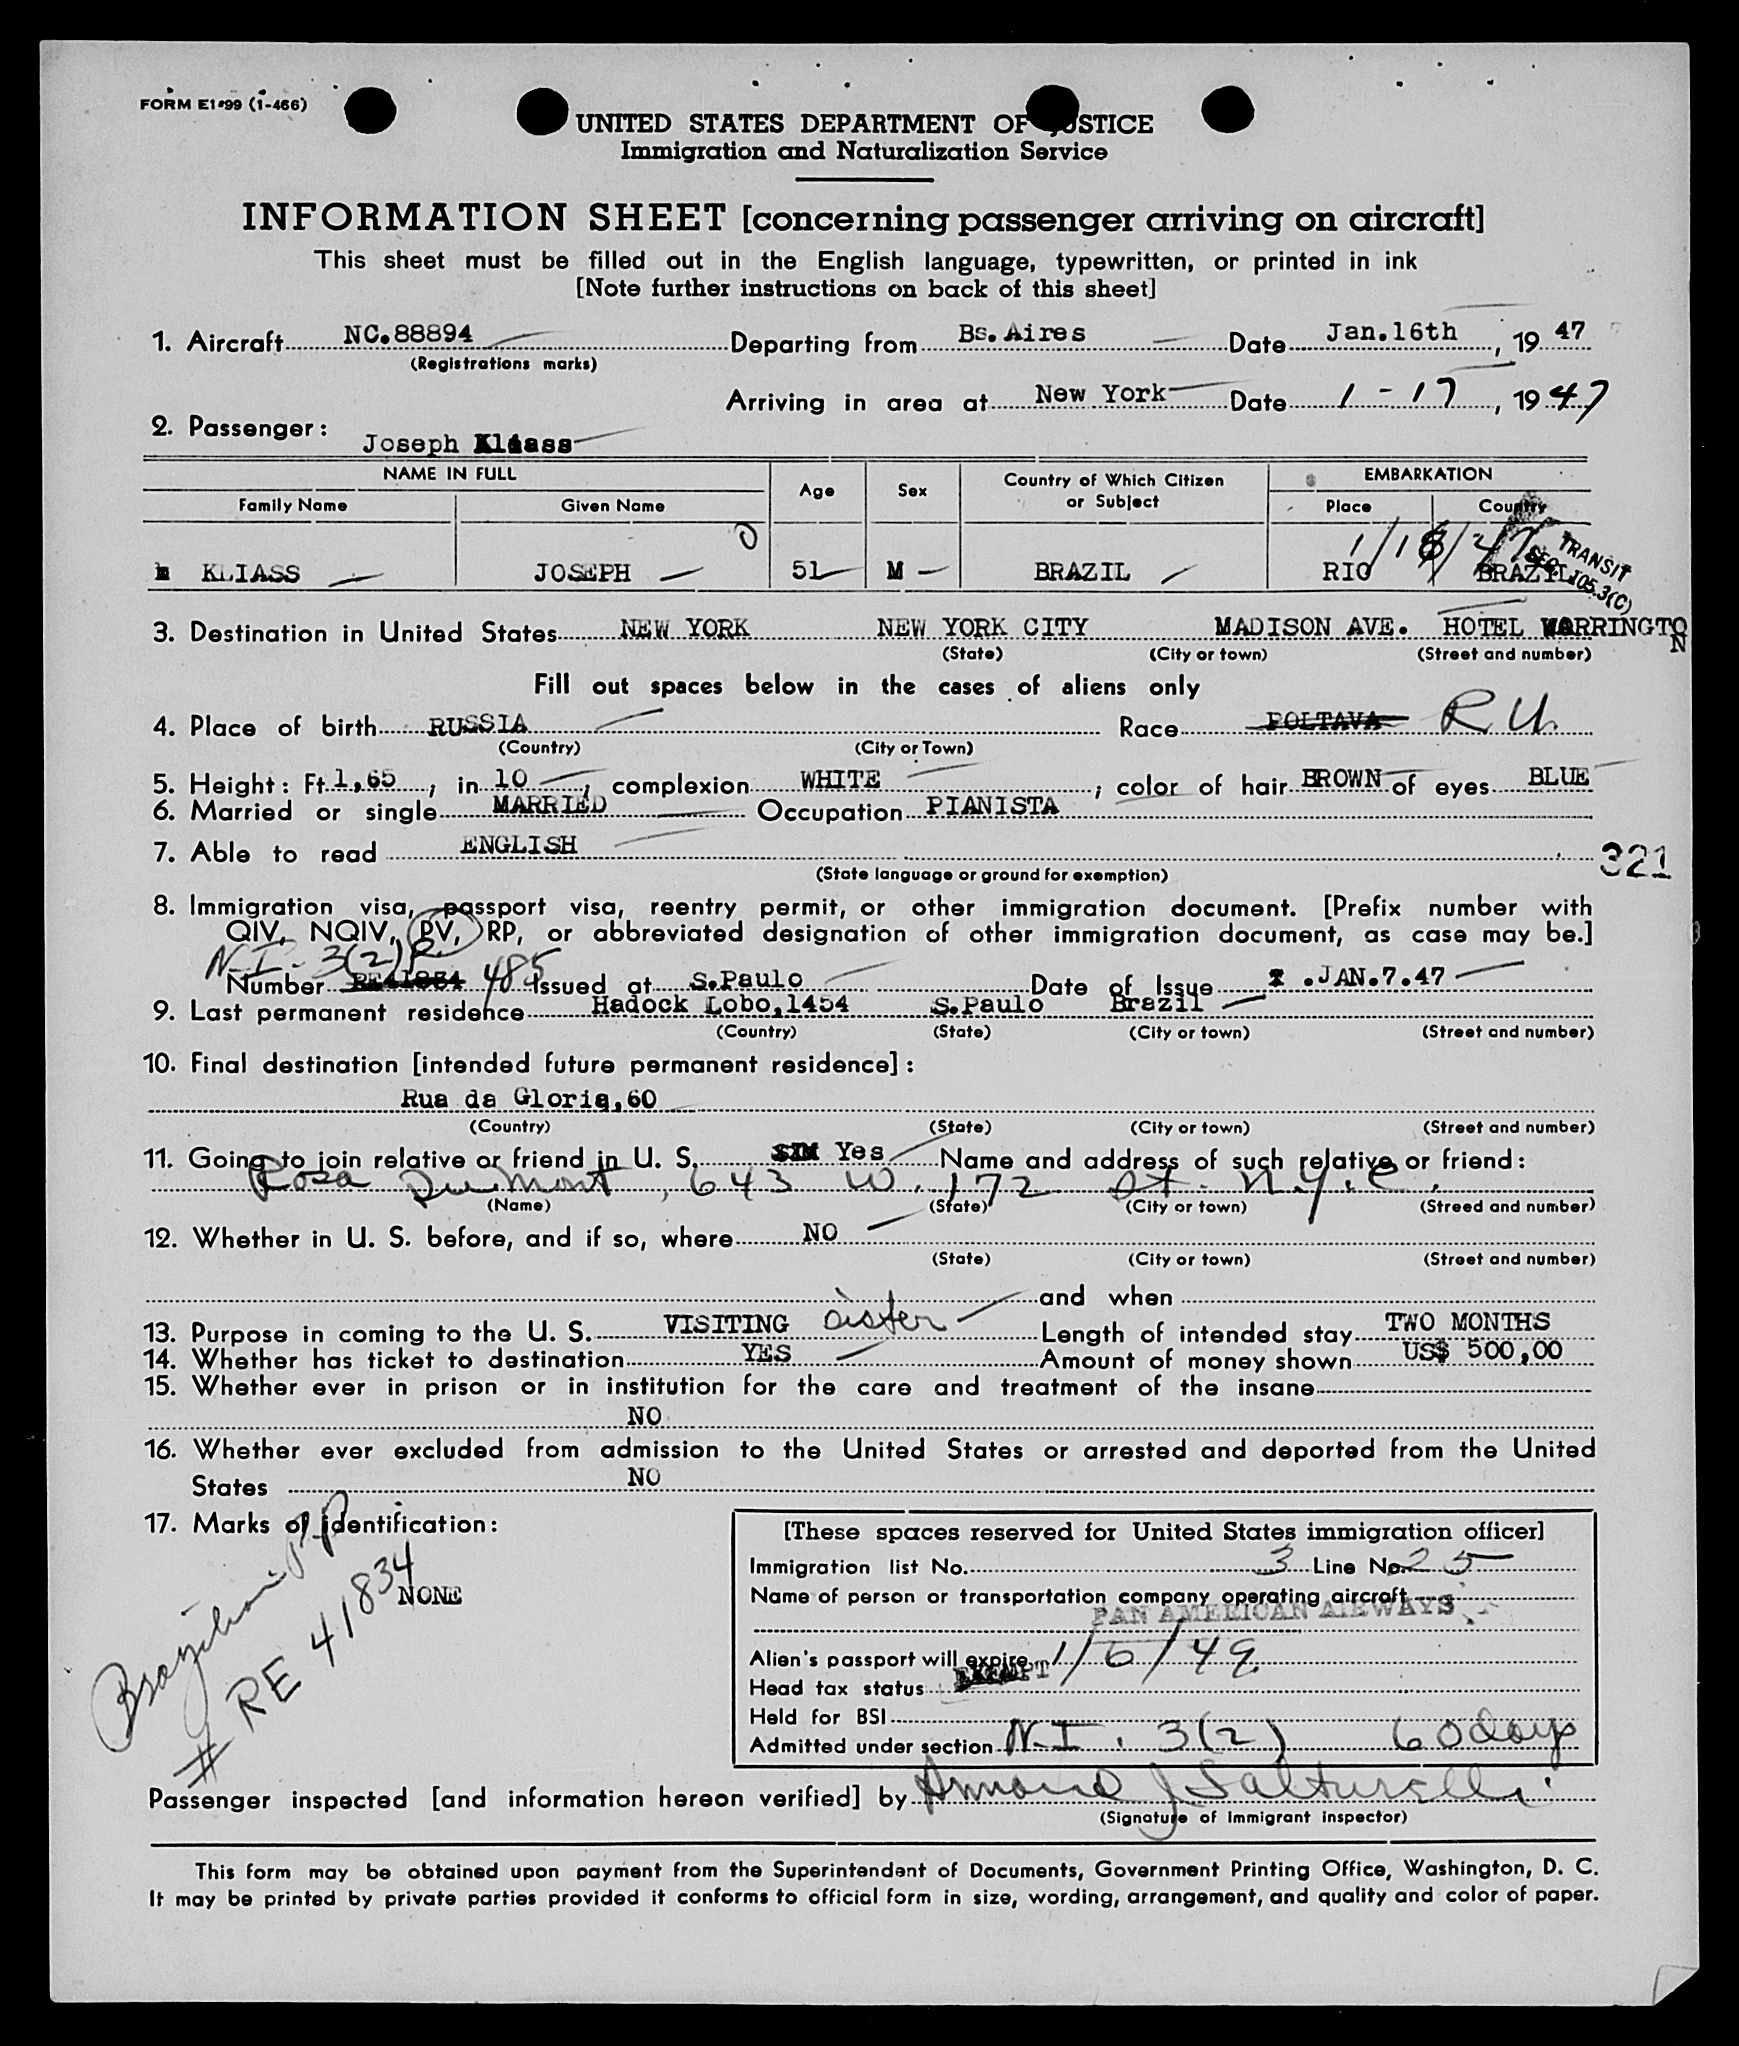 FORM E1-99 (1-466)
UNITED STATES DEPARTMENT OF JUSTICE
Immigration and Naturalization Service
INFORMATION SHEET [concerning passenger arriving on aircraft]
This sheet must be filled out in the English language, typewritten, or printed in ink
[Note further instructions on back of this sheet]
1. Aircraft NC.88894 Departing from Bs.Aires Date Jan.16th, 19 47
(Registrations marks)
Arriving in area at New York Date 1-17, 1947
2. Passenger:
Joseph Kliass
NAME IN FULL Age Sex Country of Which Citizen or Subject EMBARKATION
Family Name Given Name Place Country
0 1/18/47
TRANSIT
SEC. 105.3(C)
KLIASS JOSEPH 51 M BRAZIL RIO BRAZIL
3. Destination in United States NEW YORK NEW YORK CITY MADISON AVE. HOTEL WARRINGTON
(State) (City or town) (Street and number)
Fill out spaces below in the cases of aliens only
4. Place of birth RUSSIA Race POLTAVA RU.
(Country) (City or Town)
5. Height: Ft. 1,65, in. 10; complexion WHITE; color of hair BROWN of eyes BLUE
6. Married or single MARRIED Occupation PIANISTA
7. Able to read ENGLISH
321
(State language or ground for exemption)
8. Immigration visa, passport visa, reentry permit, or other immigration document. [Prefix number with
QIV, NQIV, PV, RP, or abbreviated designation of other immigration document, as case may be.]
N.I. 3(2) R.
Number 485 Issued at S.Paulo Date of Issue .JAN.7.47
9. Last permanent residence Hadock Lobo,1454 S.Paulo Brazil
(Country) (State) (City or town) (Street and number)
10. Final destination [intended future permanent residence]:
Rua da Gloria,60
(Country) (State) (City or town) (Street and number)
11. Going to join relative or friend in U. S. SIM Yes Name and address of such relative or friend:
Rosa Dumont, 643 W. 172 St. N.Y.C.
(Name) (State) (City or town) (Streed and number)
12. Whether in U. S. before, and if so, where NO
(State) (City or town) (Street and number)
and when
13. Purpose in coming to the U. S. VISITING sister Length of intended stay TWO MONTHS
14. Whether has ticket to destination YES Amount of money shown US$ 500,00
15. Whether ever in prison or in institution for the care and treatment of the insane
NO
16. Whether ever excluded from admission to the United States or arrested and deported from the United
States NO
17. Marks of identification:
NONE
Brazilian P.P.
# RE 41834
[These spaces reserved for United States immigration officer]
Immigration list No. 3 Line No. 25
Name of person or transportation company operating aircraft
PAN AMERICAN AIRWAYS
Alien's passport will expire 1/6/49
Head tax status EXEMPT
Held for BSI
Admitted under section N.I. 3(2) 60 days
Passenger inspected [and information hereon verified] by Armand J Salturelli
(Signature of Immigrant inspector)
This form may be obtained upon payment from the Superintendent of Documents, Government Printing Office, Washington, D. C.
It may be printed by private parties provided it conforms to official form in size, wording, arrangement, and quality and color of paper.